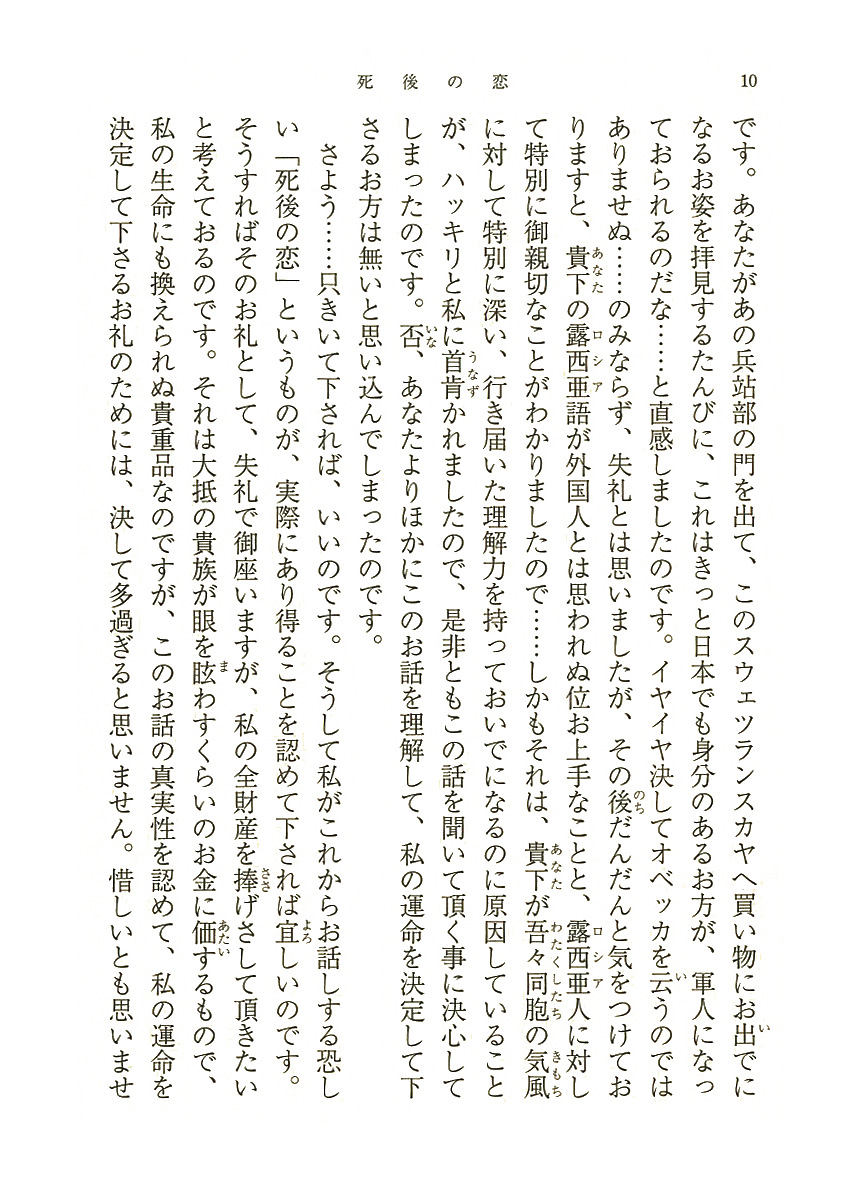 死後の恋
10
です。あなたがあの兵站部の門を出て、このスウェツランスカヤへ買い物にお出でに
なるお姿を拝見するたんびに、これはきっと日本でも身分のあるお方が、軍人になっ
ておられるのだな……と直感しましたのです。イヤイヤ決してオベッカを云うのでは
ありませぬ……のみならず、失礼とは思いましたが、その後だんだんと気をつけてお
りますと、貴下の露西亜語が外国人とは思われぬ位お上手なことと、露西亜人に対し
て特別に御親切なことがわかりましたので……しかもそれは、貴下が吾々同胞の気風
に対して特別に深い、行き届いた理解力を持っておいでになるのに原因していること
が、ハッキリと私に首肯かれましたので、是非ともこの話を聞いて頂く事に決心して
しまったのです。否、あなたよりほかにこのお話を理解して、私の運命を決定して下
さるお方は無いと思い込んでしまったのです。
さよう……只きいて下されば、いいのです。そうして私がこれからお話しする恐し
い「死後の恋」というものが、実際にあり得ることを認めて下されば宜しいのです。
そうすればそのお礼として、失礼で御座いますが、私の全財産を捧げさして頂きたい
と考えておるのです。それは大抵の貴族が眼を眩わすくらいのお金に価するもので、
私の生命にも換えられぬ貴重品なのですが、このお話の真実性を認めて、私の運命を
決定して下さるお礼のためには、決して多過ぎると思いません。惜しいとも思いませ